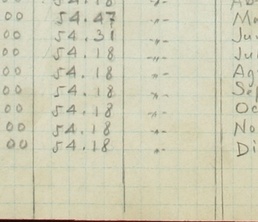 54.18 -"- Ab
00 54.47 -"- Ma
00 54.31 -"- Ju
00 54.18 -"- Ju
00 54.18 -"- Ag
00 54.18 -"- Sep
00 54.18 -"- Oc
00 54.18 -"- No
00 54.18 -"- Di